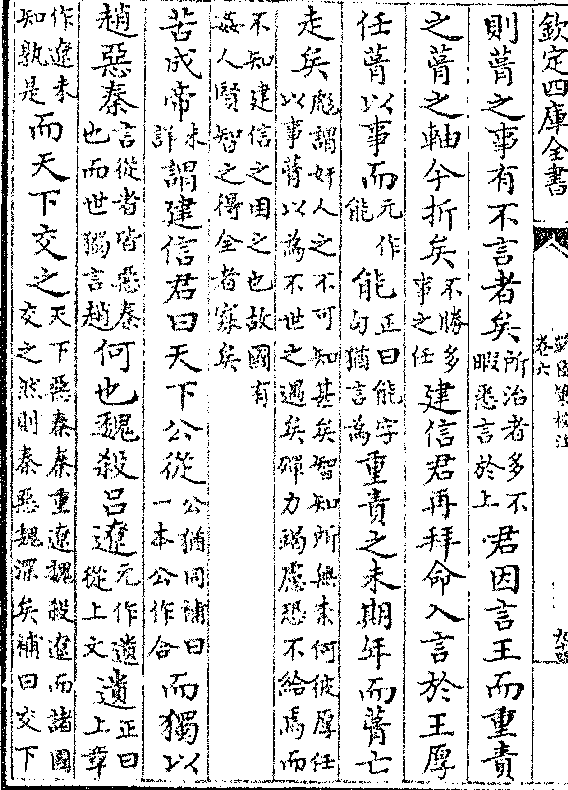 欽定四庫全書
卷六
則葺之事有不言者矣所治者多不
暇悉言於上君因言王而重責
之葺之軸今折矣不勝多
事之任建信君再拜命入言於王厚
任葺以事而元作
能能正曰能字
句猶言為重責之未期年而葺亡
走矣彪謂奸人之不可知甚矣智知所無柰何彼厚任
以事葺以為不世之遇矣殫力竭慮恐不給焉而
不知建信之困之也故國有
姦人賢智之得全者寡矣
苦成帝未
詳謂建信君曰天下公從公猶同補曰
一本公作合而獨以
趙惡秦言從者皆惡秦
也而世獨言趙何也魏殺呂遼元作遺正曰
從上文遺上章
作遼未
知孰是而天下交之天下惡秦秦重遼魏殺遼而諸國
交之然則秦惡魏深矣補曰交下